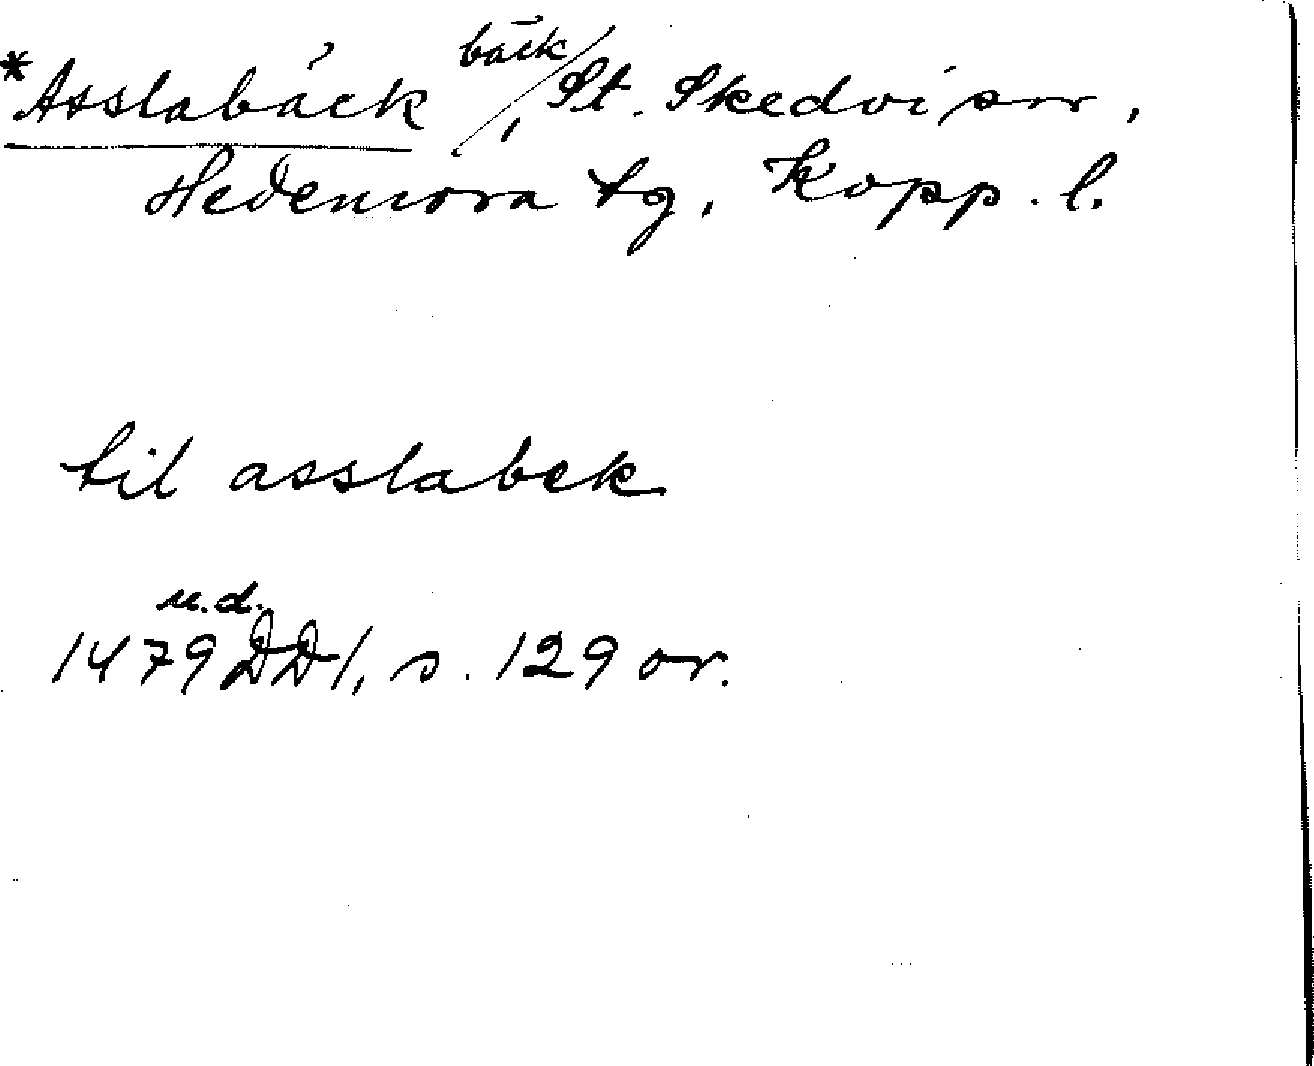 *Asslabäck bäck/, St. Skedvi snr,
Hedemora tg, Kopp. l.
til asslabek
u.d.
1479 DD 1, s. 129 or.